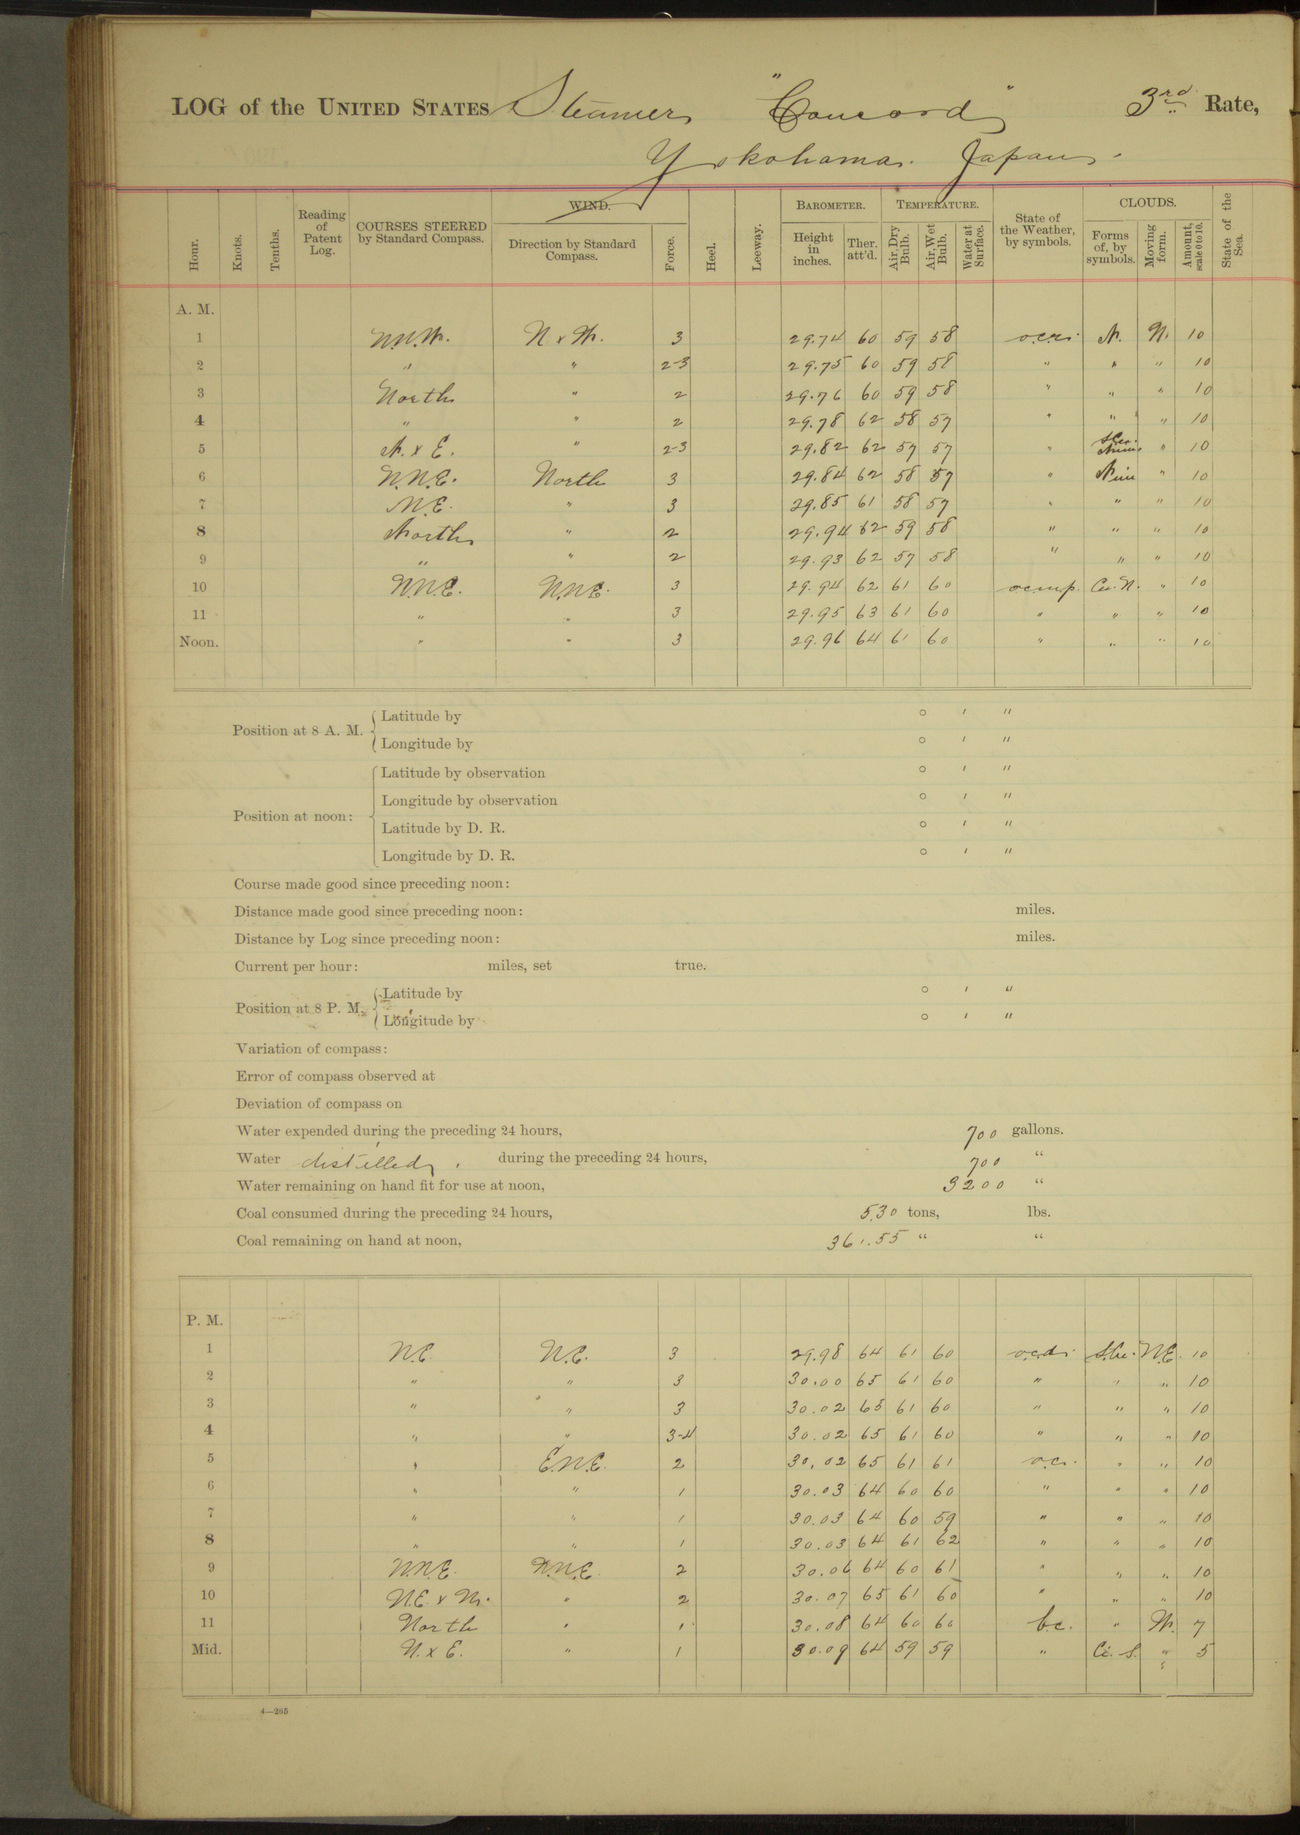 LOG of the UNITED STATES Steamer "Concord" 3rd Rate,
Yokohama. Japan.
Hour. Knots. Tenths. Reading of Patent Log. COURSES STEERED by Standard Compass. WIND. Direction by Standard Compass. Force. Heel. Leeway. BAROMETER. Height in inches. Ther. att'd. TEMPERATURE. Air, Dry Bulb. Air, Wet Bulb. Water at Surface. State of the Weather, by symbols. CLOUDS. Forms of, by symbols. Moving form. Amount, scale 0 to 10. State of the Sea.
A. M.
1 N.N.W. N x W. 3 29.74 60 59 58 N. N. 10
2 " " 2-3 29.75 60 59 58 " " " 10
3 North " 2 29.76 60 59 58 " " " 10
4 " " 2 29.78 62 58 57 " " " 10
5 N. x E. " 2-3 29.82 62 57 57 " " 10
6 N.N.E. North 3 29.84 62 58 57 " Nim " 10
7 N.E. " 3 29.85 61 58 57 " " " 10
8 North " 2 29.94 62 59 58 " " " 10
9 " " 2 29.93 62 57 58 " " " 10
10 N.N.E. N.N.E. 3 29.94 62 61 60 o.c.m.p. Cu. N. " 10
11 " " 3 29.95 63 61 60 " " " 10
Noon. " " 3 29.96 64 61 60 " " " 10
Position at 8 A. M. Latitude by ° ′ ″
Longitude by ° ′ ″
Position at noon: Latitude by observation ° ′ ″
Longitude by observation ° ′ ″
Latitude by D. R. ° ′ ″
Longitude by D. R. ° ′ ″
Course made good since preceding noon:
Distance made good since preceding noon: miles.
Distance by Log since preceding noon: miles.
Current per hour: miles, set true.
Position at 8 P. M. Latitude by ° ′ ″
Longitude by ° ′ ″
Variation of compass:
Error of compass observed at
Deviation of compass on
Water expended during the preceding 24 hours, 700 gallons.
Water distilled, during the preceding 24 hours, 700 "
Water remaining on hand fit for use at noon, 3200 "
Coal consumed during the preceding 24 hours, 5.30 tons, lbs.
Coal remaining on hand at noon, 361.55 " "
P. M.
1 N.E. N.E. 3 29.98 64 61 60 o.c.d. S.Cu. N.E. 10
2 " " 3 30.00 65 61 60 " " " 10
3 " " 3 30.02 65 61 60 " " " 10
4 " " 3-4 30.02 65 61 60 " " " 10
5 " E.N.E. 2 30.02 65 61 61 o.c. " " 10
6 " " 1 30.03 64 60 60 " " " 10
7 " " 1 30.03 64 60 59 " " " 10
8 " " 1 30.03 64 61 62 " " " 10
9 N.N.E. N.N.E. 2 30.06 64 60 61 " " " 10
10 N.E. x N. " 2 30.07 65 61 60 " " " 10
11 North " 1 30.08 64 60 60 b.c. " W. 7
Mid. N. x E. " 1 30.09 64 59 59 " Ci. S. " 5
4—265